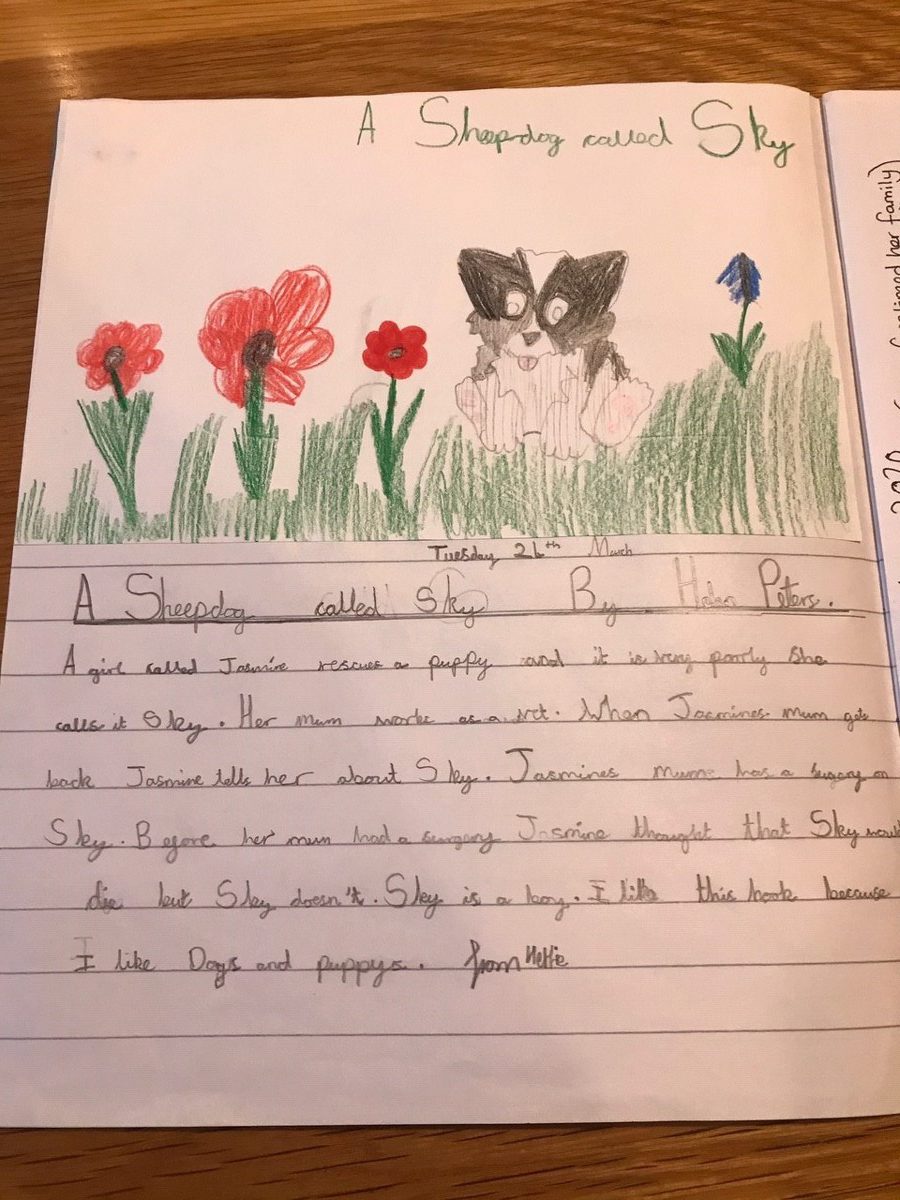 A Sheepdog called Sky
Tuesday 26th March
A Sheepdog called Sky By Helen Peters.
A girl called Jasmine rescues a puppy and it is very poorly She
calls it Sky. Her mum works as a vet. When Jasmines mum gets
back Jasmine tells her about Sky. Jasmines mum has a sugary on
Sky. Before her mum had a surgery Jasmine thought that Sky would
die but Sky doesn't. Sky is a boy. I like this book because
I like Dogs and puppys. from
her family)
2020